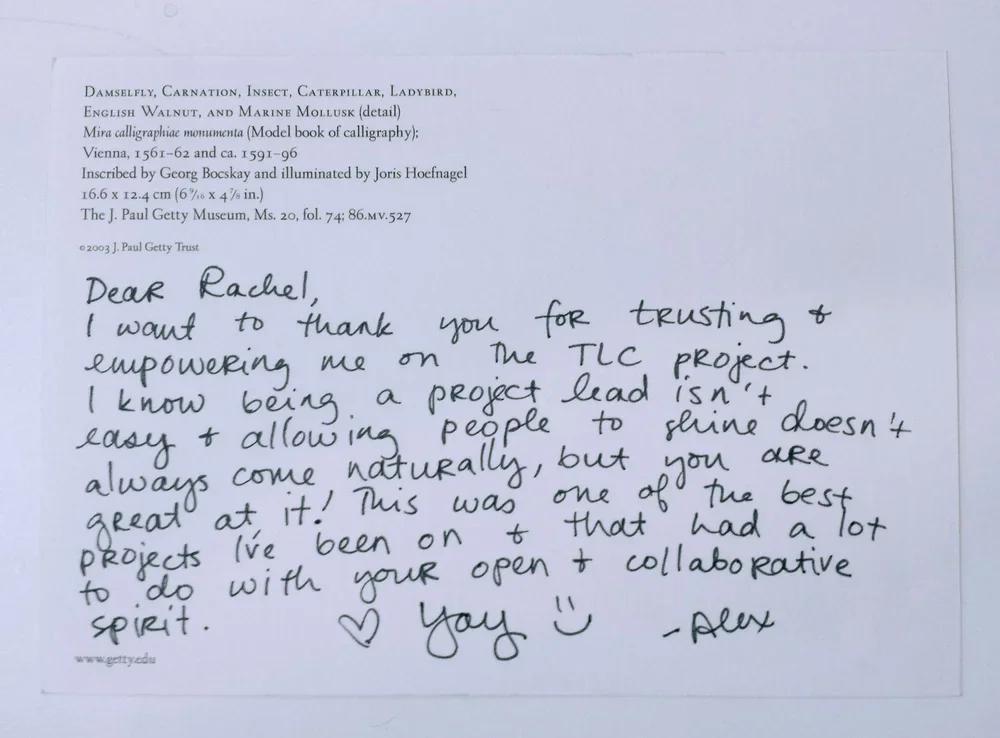 Damselfly, Carnation, Insect, Caterpillar, Ladybird,
English Walnut, and Marine Mollusk (detail)
Mira calligraphiae monumenta (Model book of calligraphy);
Vienna, 1561–62 and ca. 1591–96
Inscribed by Georg Bocskay and illuminated by Joris Hoefnagel
16.6 x 12.4 cm (6 9/16 x 4 7/8 in.)
The J. Paul Getty Museum, Ms. 20, fol. 74; 86.MV.527
©2003 J. Paul Getty Trust
Dear Rachel,
I want to thank you for trusting +
empowering me on the TLC project.
I know being a project lead isn't
easy + allowing people to shine doesn't
always come naturally, but you are
great at it! This was one of the best
projects I've been on + that had a lot
to do with your open + collaborative
spirit. ♡ Yay :) -Alex
www.getty.edu